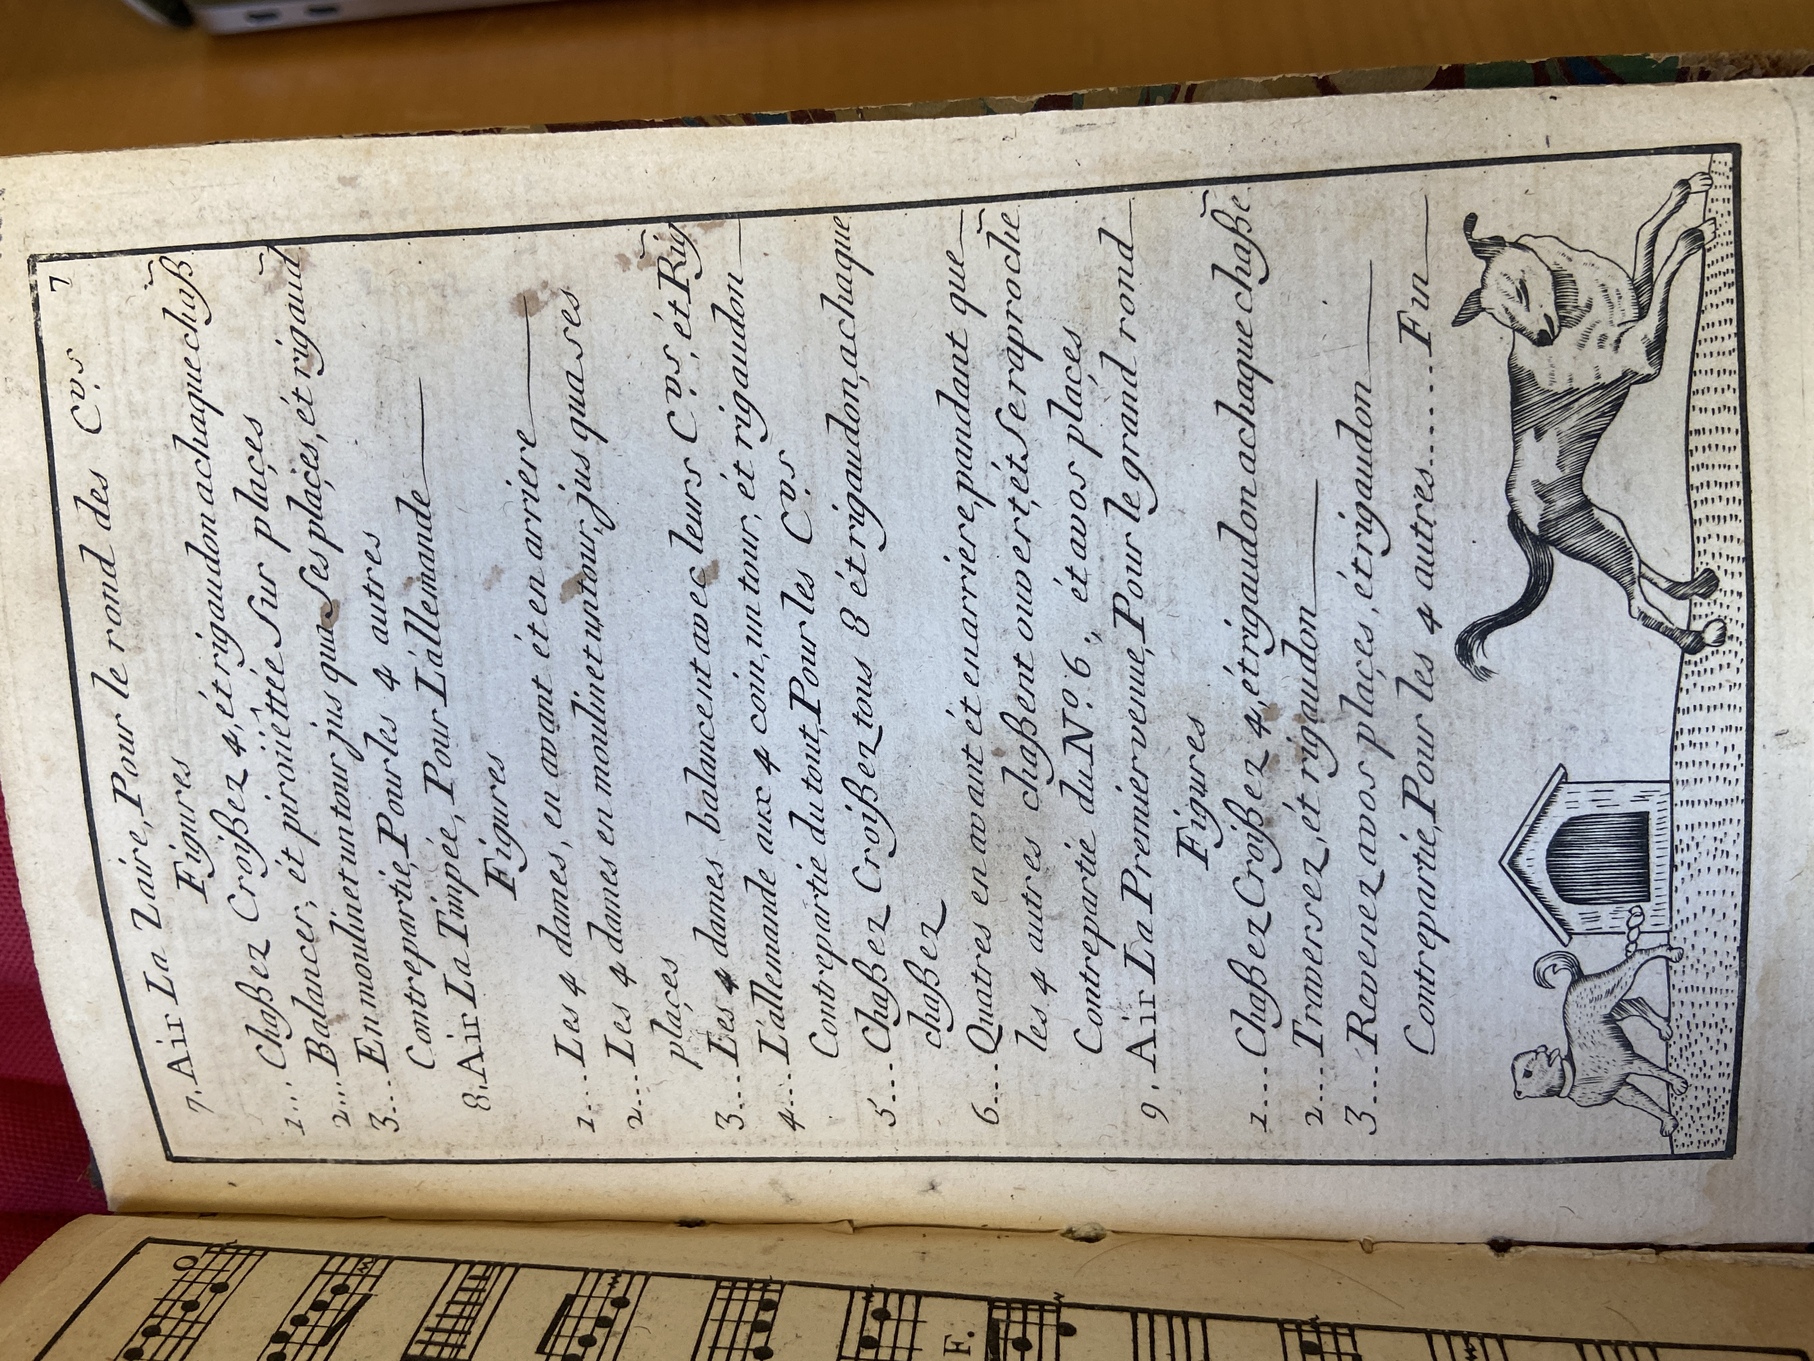 7
7. Air La Zaire, Pour le rond des C.vs
Figures
1... Chaßez Croißez 4, ét rigaudon a chaque chaß
2... Balancer, ét piroüéttée Sur plaçes
3... En moulinet un tour jus qua Ses plaçes, ét rigaud
Contrepartie, Pour les 4 autres
8. Air La Timpée, Pour L'allemande
Figures
1.... Les 4 dames, en avant ét en arriere
2.... Les 4 dames en moulinet un tour, jus qua ses
plaçes
3.... Les 4 dames balancent avec leurs C.vs, ét Rig
4... L'allemande aux 4 coin, un tour, ét rigaudon
Contrepartie du tout, Pour les C.vs
5... Chaßez Croißez tous 8 ét rigaudon, a chaque
chaßez
6... Quatres en avant ét en arriere, pandant que
les 4 autres chaßent ouvert, ét Se raproche
Contrepartie du No. 6, ét a vos plaçes
9. Air La Premier venue, Pour le grand rond
Figures
1.... Chaßez Croißez 4, ét rigaudon a chaque chaße
2.... Traversez, ét rigaudon
3.... Revenez a vos plaçes, ét rigaudon
Contrepartie, Pour les 4 autres...... Fin
F.